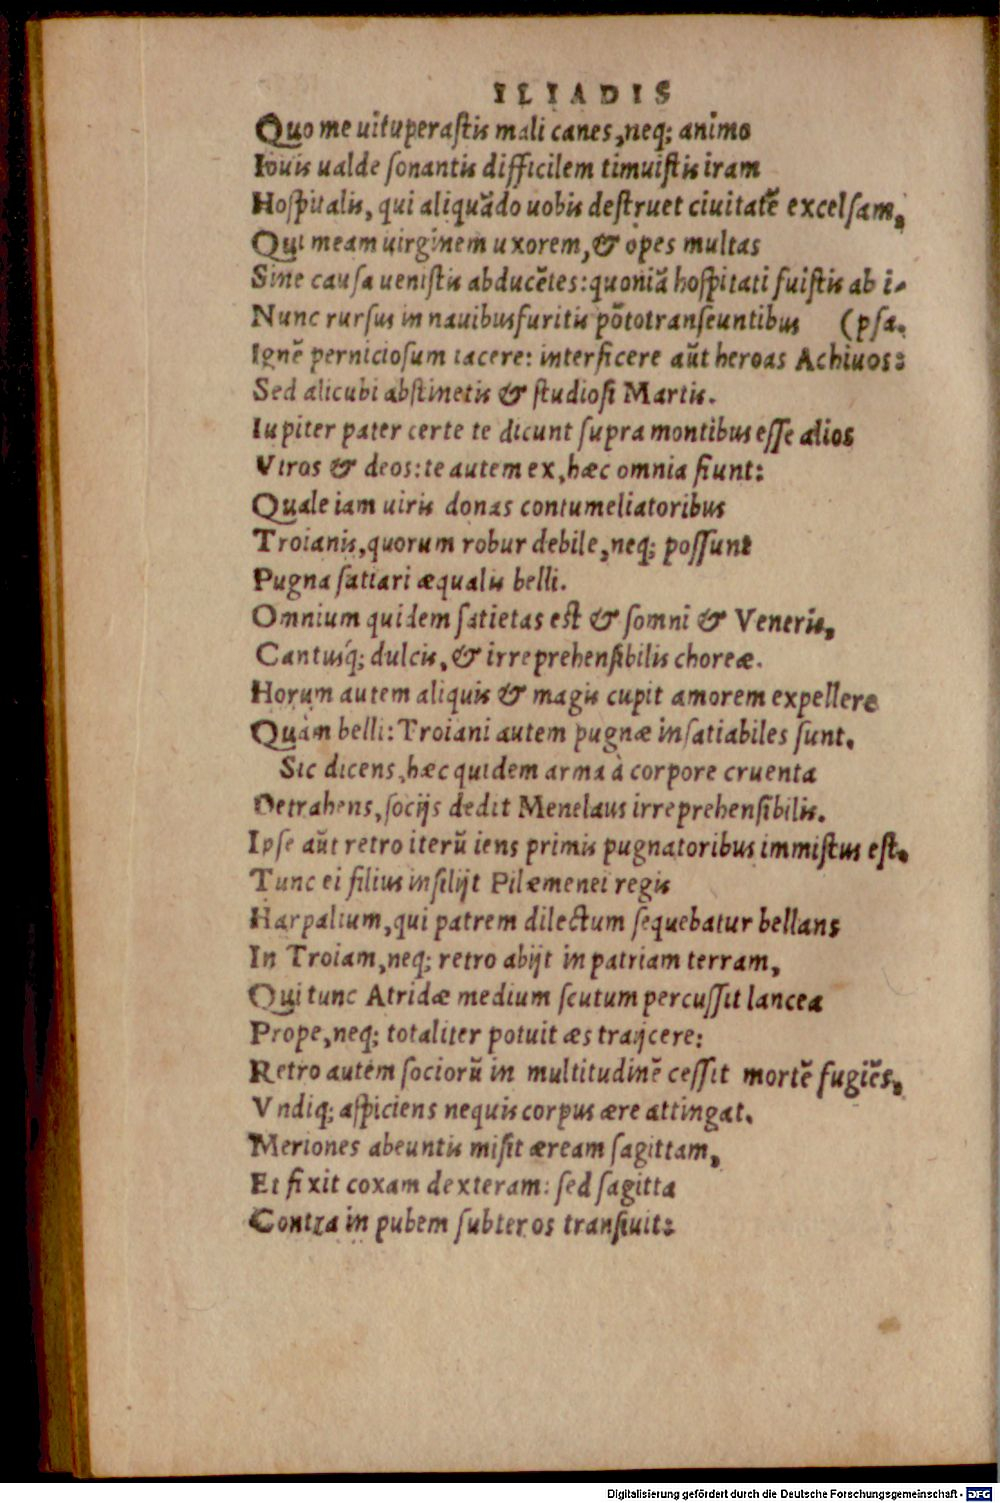 ILIADIS
Quo me uituperaſtis mali canes, neq; animo
Iouis ualde ſonantis difficilem timuiſtis iram
Hoſpitalis, qui aliquãdo uobis deſtruet ciuitatẽ excelſam,
Qui meam uirginem uxorem, & opes multas
Sine cauſa ueniſtis abducẽtes: quoniã hoſpitati fuiſtis ab i-
Nunc rurſus in nauibus furitis põtotranſeuntibus (pſa.
Ignẽ pernicioſum iacere: interficere aũt heroas Achiuos:
Sed alicubi abſtinetis & ſtudioſi Martis.
Iupiter pater certe te dicunt ſupra montibus eſſe alios
Viros & deos: te autem ex, hæc omnia fiunt:
Quale iam uiris donas contumeliatoribus
Troianis, quorum robur debile, neq; poſſunt
Pugna ſatiari æqualis belli.
Omnium quidem ſatietas eſt & ſomni & Veneris,
Cantusq́; dulcis, & irreprehenſibilis choreæ.
Horum autem aliquis & magis cupit amorem expellere
Quàm belli: Troiani autem pugnæ inſatiabiles ſunt.
Sic dicens, hæc quidem arma à corpore cruenta
Detrahens, ſocijs dedit Menelaus irreprehenſibilis.
Ipſe aũt retro iterũ iens primis pugnatoribus immiſtus eſt.
Tunc ei filius inſilijt Pilæmenei regis
Harpalium, qui patrem dilectum ſequebatur bellans
In Troiam, neq; retro abijt in patriam terram,
Qui tunc Atridæ medium ſcutum percuſſit lancea
Prope, neq; totaliter potuit æs traijcere:
Retro autem ſociorũ in multitudinẽ ceſſit mortẽ fugiẽs,
Vndiq; aſpiciens nequis corpus ære attingat.
Meriones abeuntis miſit æream ſagittam,
Et fixit coxam dexteram: ſed ſagitta
Contra in pubem ſubter os tranſiuit:
Digitalisierung gefördert durch die Deutsche Forschungsgemeinschaft - DFG